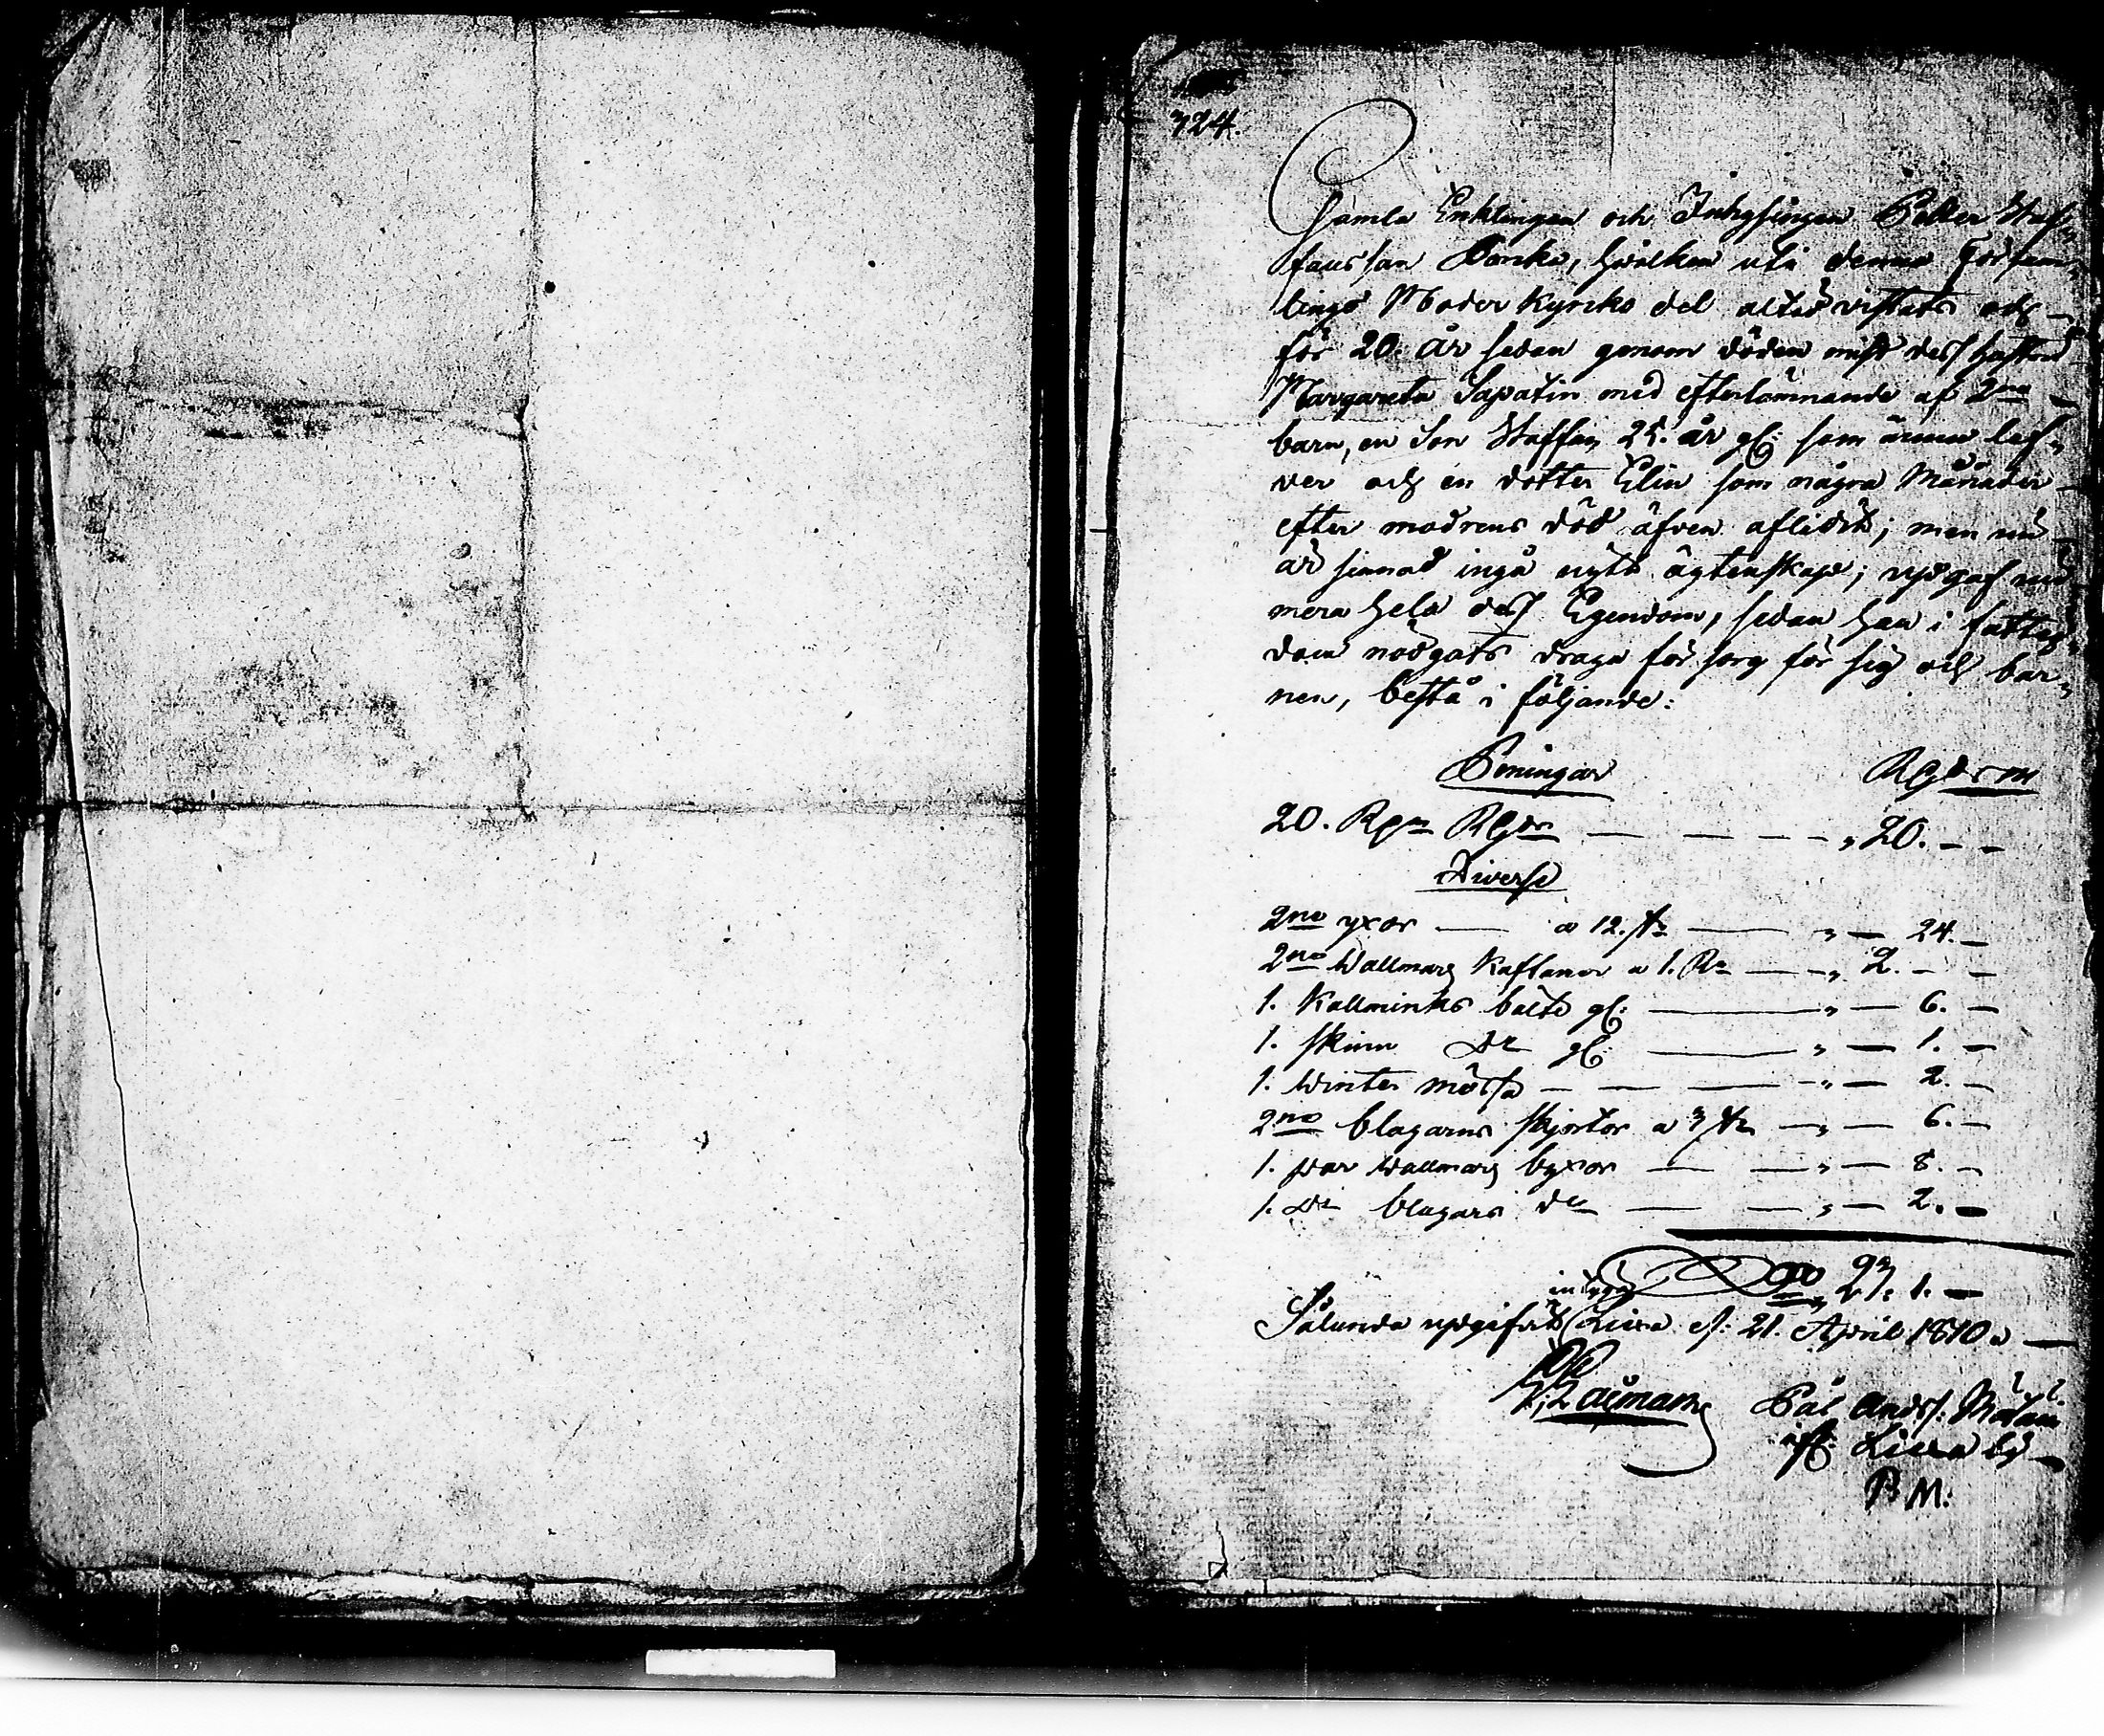 324.
Gamla Enklingen och Inhysingen Petter Staf„
fansson Danska, hvilken uti denna Försam„
lings Moder Kyrko del altid vistats och
för 20. år sedan genom döden mist dess hustru
Margareta Sapatin med efterlämnande af 2ne
barn, en Son Staffan 25. år gl: som ännu lef„
ver och en dotter Elin som några Månader
efter modrens död äfven aflidit; men nu
är sinnad ingå nytt ägtenskap; updgaf nu
mera hela dess Egendom, sedan han i fattig„
dom nödgats draga försorg för sig och bar„
nen, bestå i följande:
Peningar
20. Rgs — — — — „ 20. — —
Diverse
2ne yxor — a 12. sk — „ — 24. —
2ne Wallmars Kaftaner a 1. R — „ 2. — —
1. Kallminks bälte gl: — „ — 6. —
1. skinn do gl: — „ — 1. —
1. Winter mössa — — — „ — 2. —
2ne blagarns skjortor a 3 sk — „ — 6. —
1. par Wallmars byxor — — „ — 8. —
1. do blagarns do — — „ — 2. —
23. 1. —
Sålunda updgifvit Lissa d: 21. April 1810.
Påhl Anders:
Lissa by
B M: